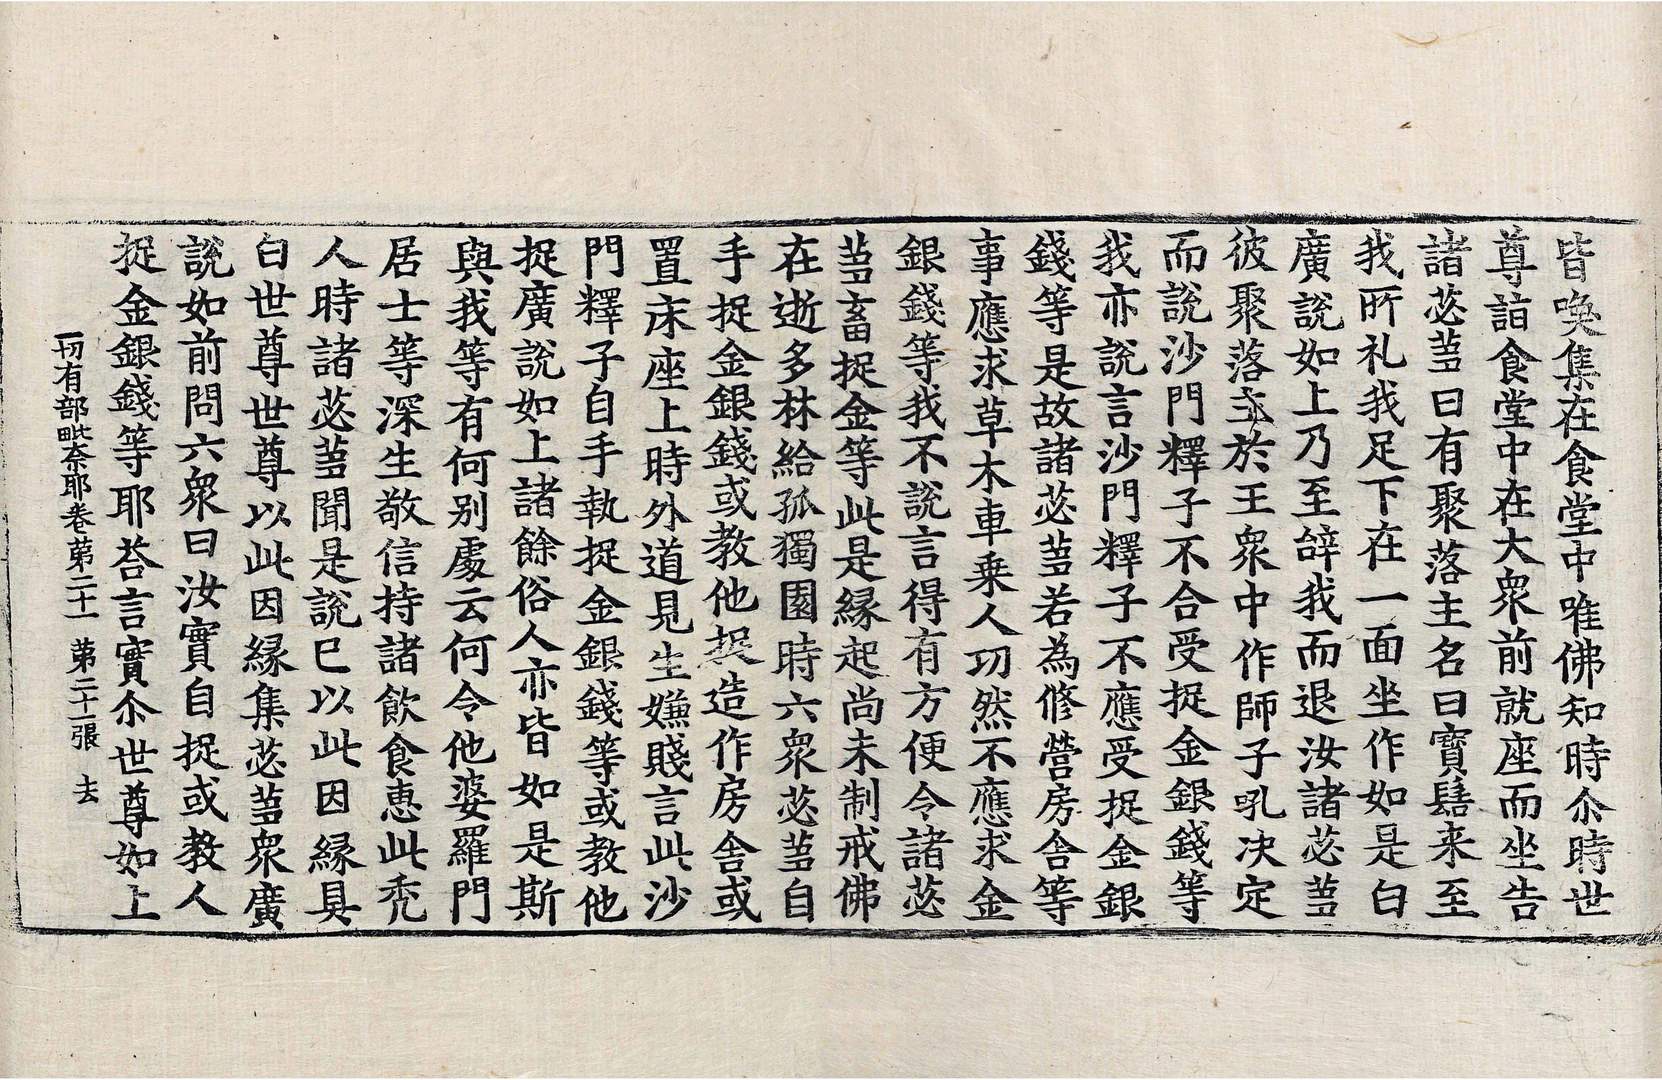 皆喚集在食堂中唯佛知時尒時世
尊詣食堂中在大衆前就座而坐告
諸苾蒭曰有聚落主名曰寳髻来至
我所礼我足下在一面坐作如是白
廣說如上乃至辝我而退汝諸苾蒭
彼聚落主於王衆中作師子吼決定
而說沙門釋子不合受捉金銀錢等
我亦說言沙門釋子不應受捉金銀
錢等是故諸苾蒭若為修營房舍等
事應求草木車乗人功然不應求金
銀錢等我不說言得有方便令諸苾
蒭畜捉金等此是緣起尚未制戒佛
在逝多林給孤獨園時六衆苾蒭自
手捉金銀錢或教他捉造作房舍或
置床座上時外道見生嫌賤言此沙
門釋子自手執捉金銀錢等或教他
捉廣說如上諸餘俗人亦皆如是斯
與我等有何別處云何令他婆羅門
居士等深生敬信持諸飲食惠此禿
人時諸苾蒭聞是說已以此因緣具
白世尊世尊以此因緣集苾蒭衆廣
說如前問六衆曰汝實自捉或教人
捉金銀錢等耶荅言實尒世尊如上
一切有部毗奈耶卷苐二十一 苐二十一張 去